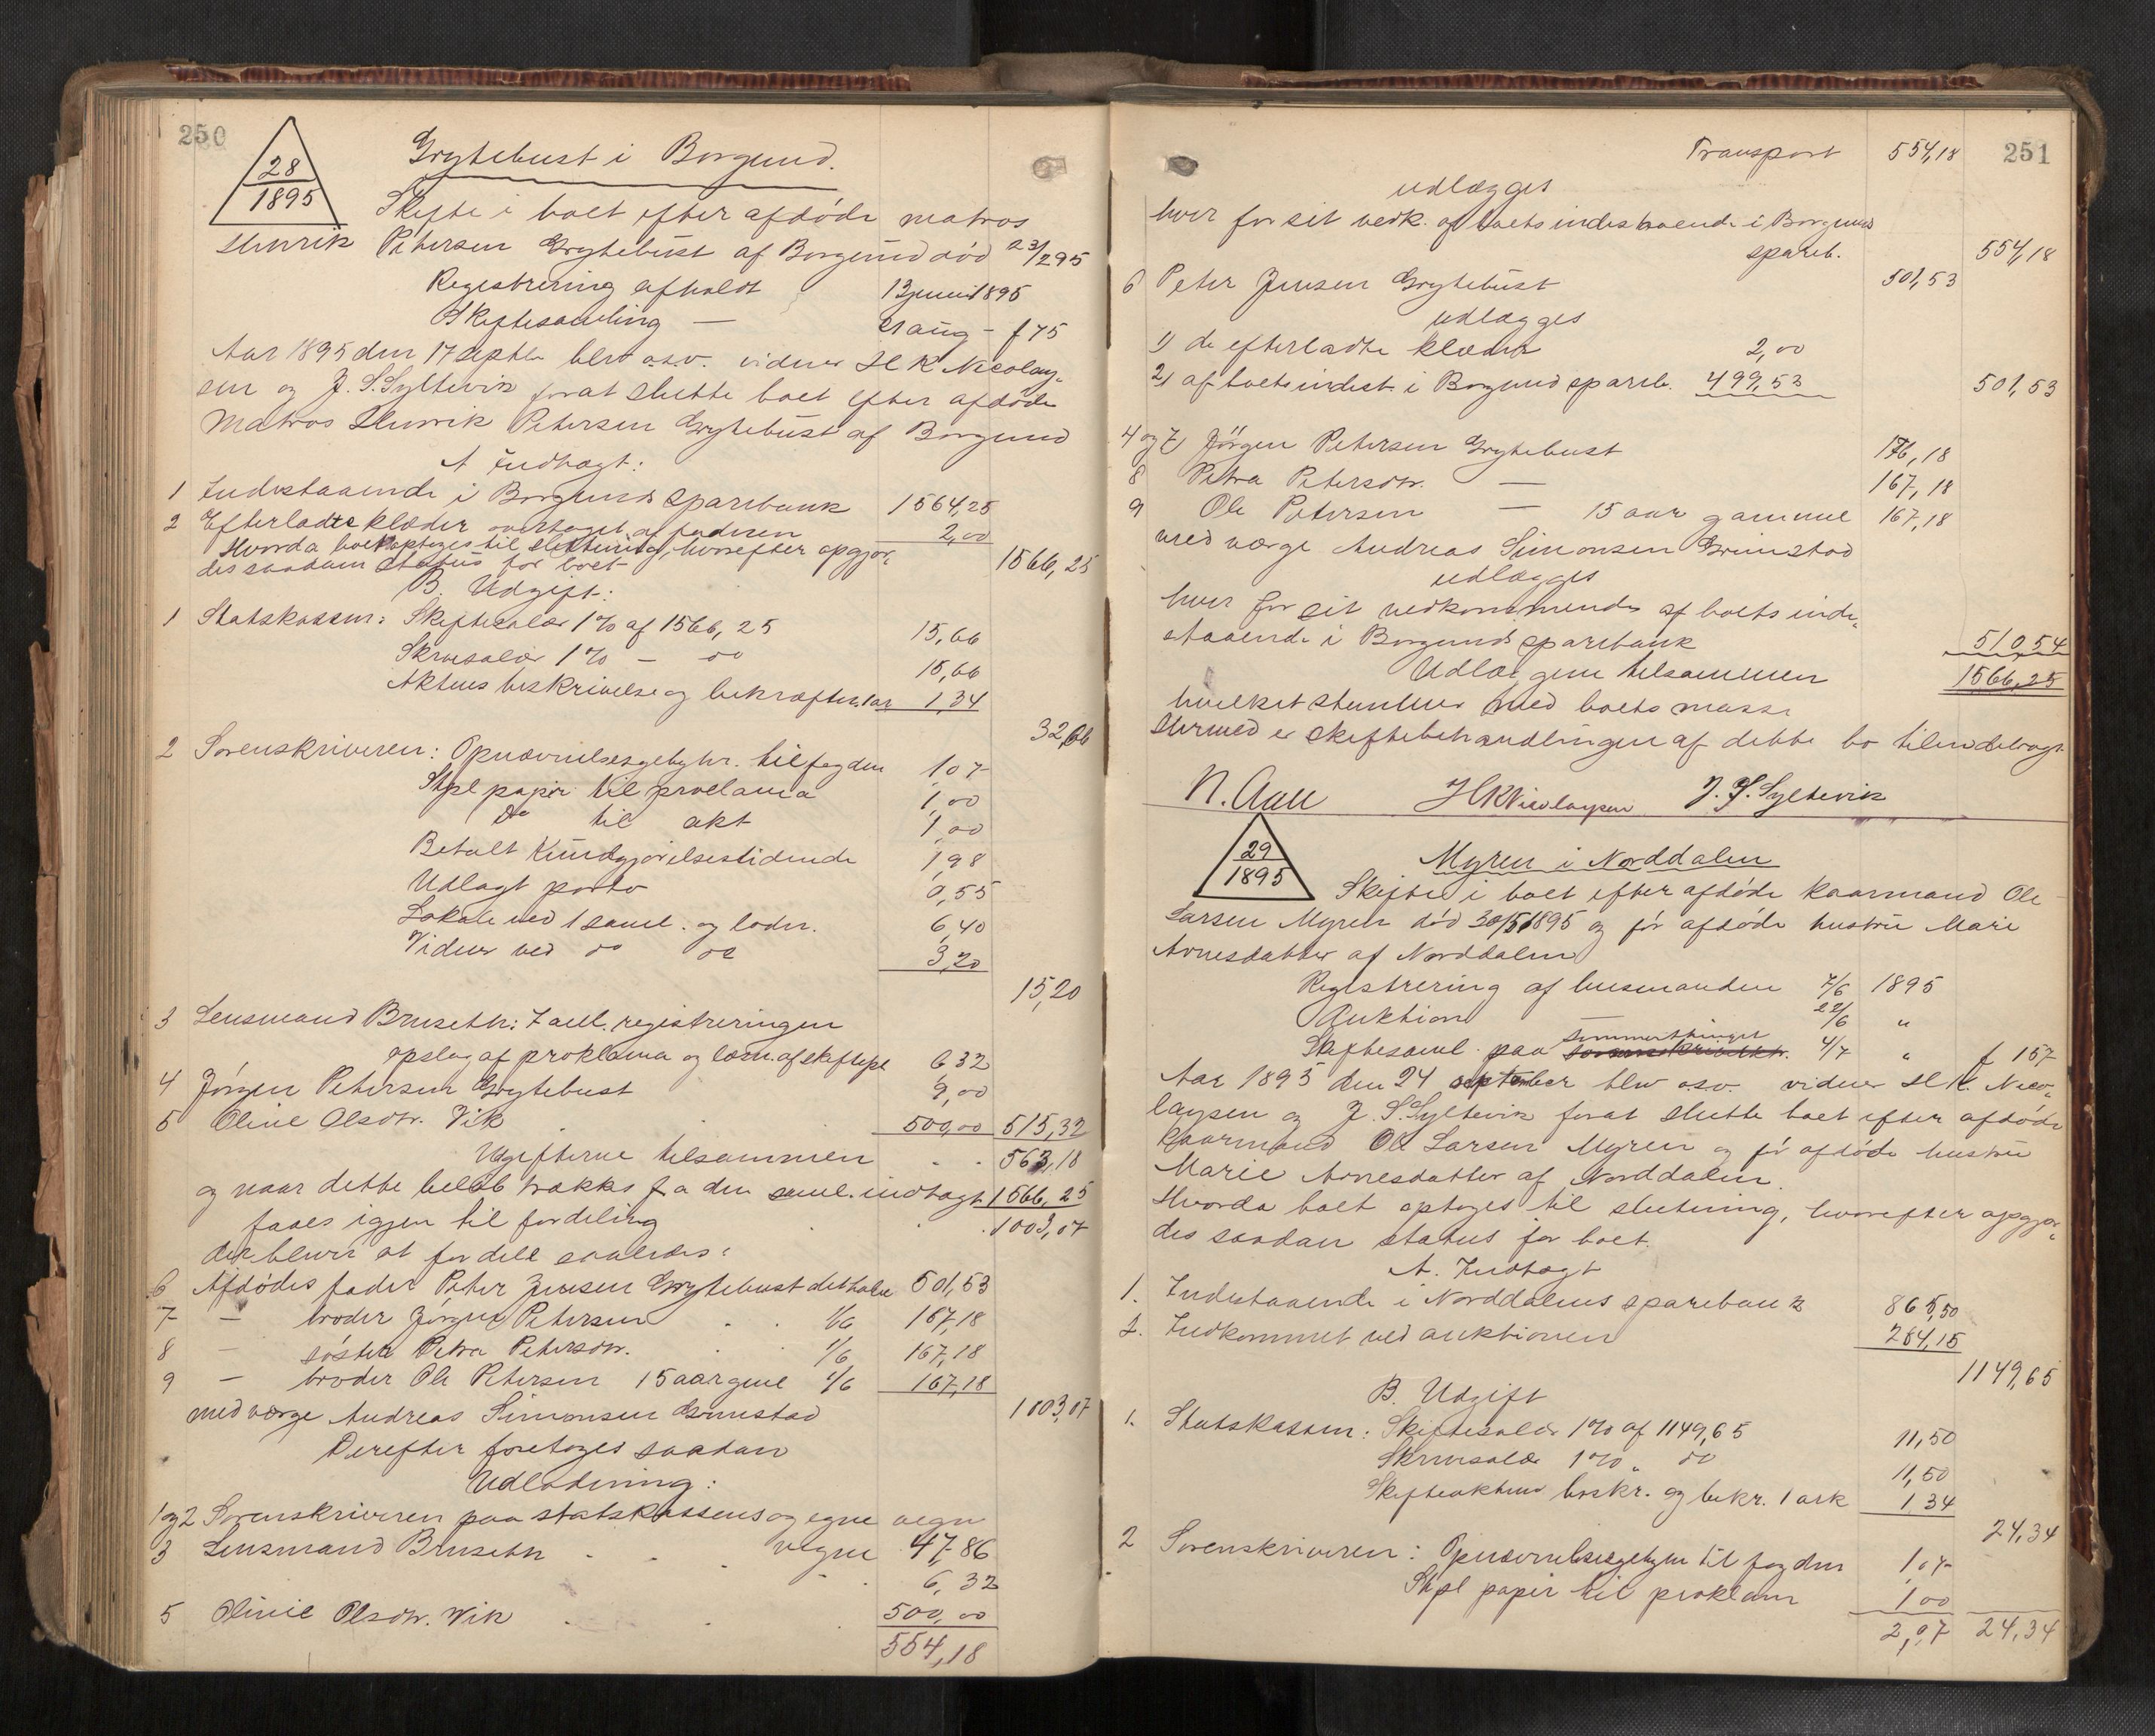 250
28
1895
Grytebust i Borgund.
Skifte i boet efter afdöde matros
Henrik Petersen Grytebust af Borgund död 23/2 95
Registrering afholdt 13 juni 1895
Skiftesamling — 21 aug - f 75
Aar 1895 den 17 septbr blev o.s.v. vidner H K Nicolay-
sen og J. S. Syltevik forat slutte boet efter afdöde
Matros Henrik Petersen Grytebust af Borgund
A Indtægt:
1 Indestaaende i Borgunds Sparebank 1564,25
2 Efterladte klæder overtaget af faderen 2,00
Hvorda boet optoges til slutning, hvorefter opgjor-
des saadan status for boet 1566,25
B. Udgift:
1 Statskassen: Skiftesalær 1% af 1566,25 15,66
Skriversalær 1% — do 15,66
Aktens beskrivelse og bekræftn. 1 ar 1,34
32,66
2 Sorenskriveren: Opnævnelsesgebyhr. til fogden 1 07
Stpl papir til proclama 1,00
Do til akt 1,00
Betalt Kundgjörelsestidende 1,98
Udlagt porto 0,55
Lokale ved 1 saml. og lodn. 6,40
Vidner ved do do 3,20
15,20
3 Lensmand Bruseth: 7 aut. registreringen
opslag af proklama og læsn. af skiftepl 6,32
4 Jörgen Petersen Grytebust 9,00
5 Oline Olsdtr. Vik 500,00 515,32
Udgifterne tilsammen . . 563,18
og naar dette belöb trækkes fra den saml. indtægt 1566,25
faaes igjen til fordeling . . 1003,07
der bliver at fordele saaledes:
6 Afdödes fader Peter Jensen Grytebust det halve 501,53
7 — broder Jörgen Petersen . . 1/6 167,18
8 — söster Petra Petersdtr. . . 1/6 167,18
9 — broder Ole Petersen 15 aar gml 1/6 167,18
med værge Andreas Simonsen Grimstad 1003,07
Derefter foretoges saadan
Udlodning:
1 og 2 Sorenskriveren paa statskassens og egne vegne 47,86
3 Lensmand Bruseth . . . 6,32
5 Olinie Olsdtr. Vik . . . 500,00
554,18
251
Transport 554,18
udlægges
hver for sit vedk. af boets indestaaende i Borgunds
spareb. 554,18
6 Peter Jensen Grytebust 501,53
udlægges
1) de efterladte klæder 2,00
2) af boets indest. i Borgund spareb. 499,53 501,53
4 og 7) Jörgen Petersen Grytebust 176,18
8 Petra Petersdtr. — 167,18
9 Ole Petersen — 15 aar gammel 167,18
med værge Andreas Simonsen Grimstad
udlægges
hver for sit vedkommende af boets inde-
staaende i Borgunds sparebank 510,54
Udlæggene tilsammen 1566,25
hvilket stemmer med boets masse
Hermed er skiftebehandlingen af dette bo tilendebragt
N. Aall HKNicolaysen J. S. Syltevik
29
1895
Myren i Norddalen
Skifte i boet efter afdöde kaarmand Ole
Larsen Myren död 30/5 1895 og för afdöde hustru Marie
Arnesdatter af Norddalen
Registrering af lensmanden 7/6 1895
Auktion — 22/6 "
sommerthinget
Skiftesaml. paa 4/7 " f 157
Aar 1895 den 24 september blev o.s.v. vidner H. K. Nico-
laysen og J. S. Syltevik forat slutte boet efter afdöde
kaarmand Ole Larsen Myren og för afdöde hustru
Marie Arnesdatter af Norddalen.
Hvorda boet optoges til slutning, hvorefter opgjor-
des saadan status for boet.
A. Indtægt
1. Indestaaende i Norddalens sparebank 865,50
2. Indkommet ved auktionen 284,15
1149,65
B. Udgift
1. Statskassen: Skiftesalær 1% af 1149,65 11,50
Skriversalær 1% " do 11,50
Skifteaktens beskr. og bekr. 1 ark 1 34
24,34
2 Sorenskriveren: Opnævnelsesgebyr til fogden 1,07
Stpl papir til proklam 1 00
2,07 24,34